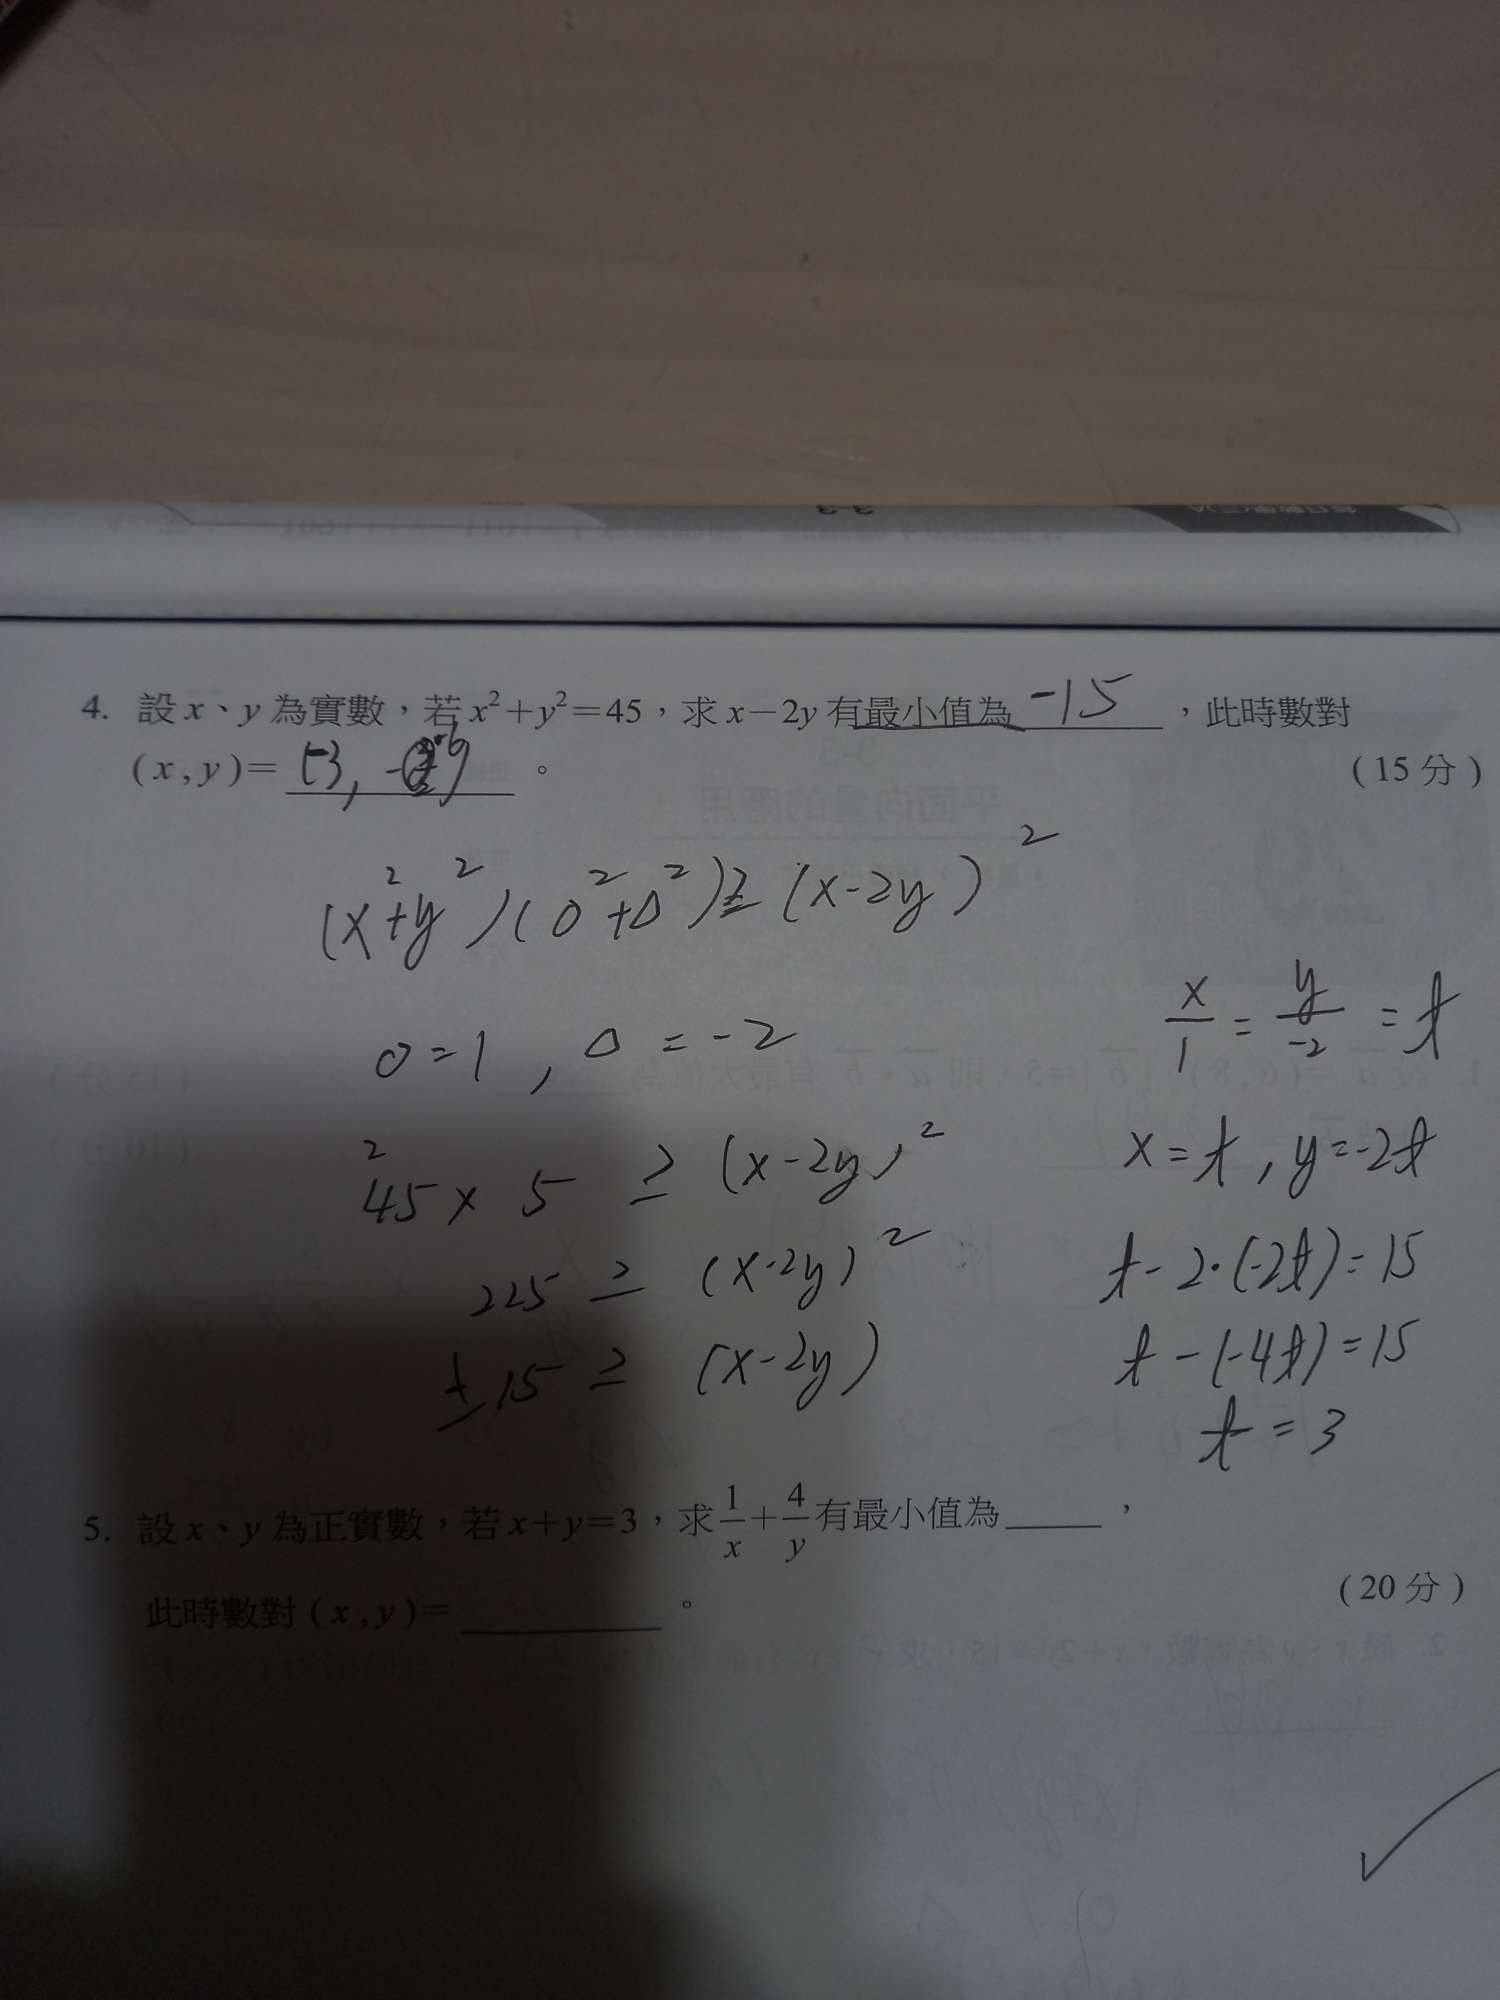 3-3
4. 設 x、y 為實數，若 x²+y²=45，求 x−2y 有最小值為 -15 ，此時數對
(x,y)= (-3, 。 (15分)
(x²+y²)(O²+Δ²)≥(x-2y)²
O=1, Δ=-2
45×5 ≥ (x-2y)²
225 ≥ (x-2y)²
±15 ≥ (x-2y)
x/1 = y/-2 = t
x=t, y=-2t
t-2·(-2t)=15
t-(-4t)=15
t=3
5. 設 x、y 為正實數，若 x+y=3，求 1/x+4/y 有最小值為_____，
此時數對 (x,y)=_________。 (20分)